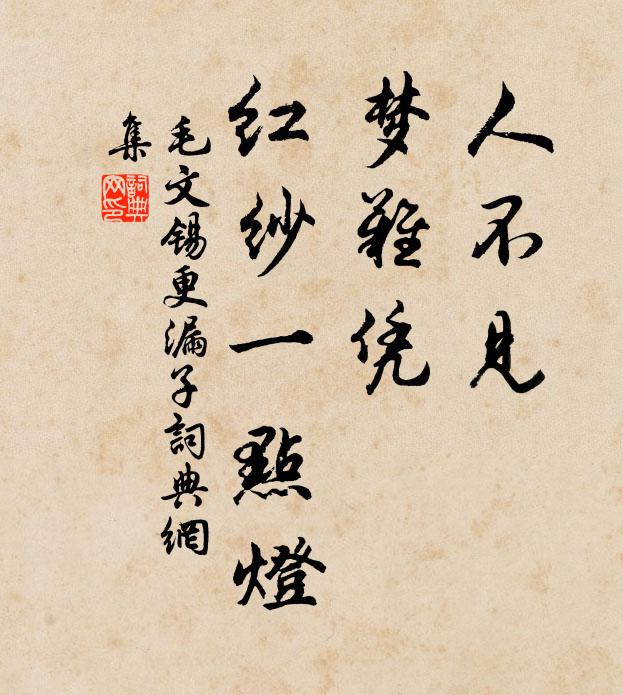 人不见
梦难凭
红纱一點燈
毛文锡更漏子詞典網
集
詞典
网印